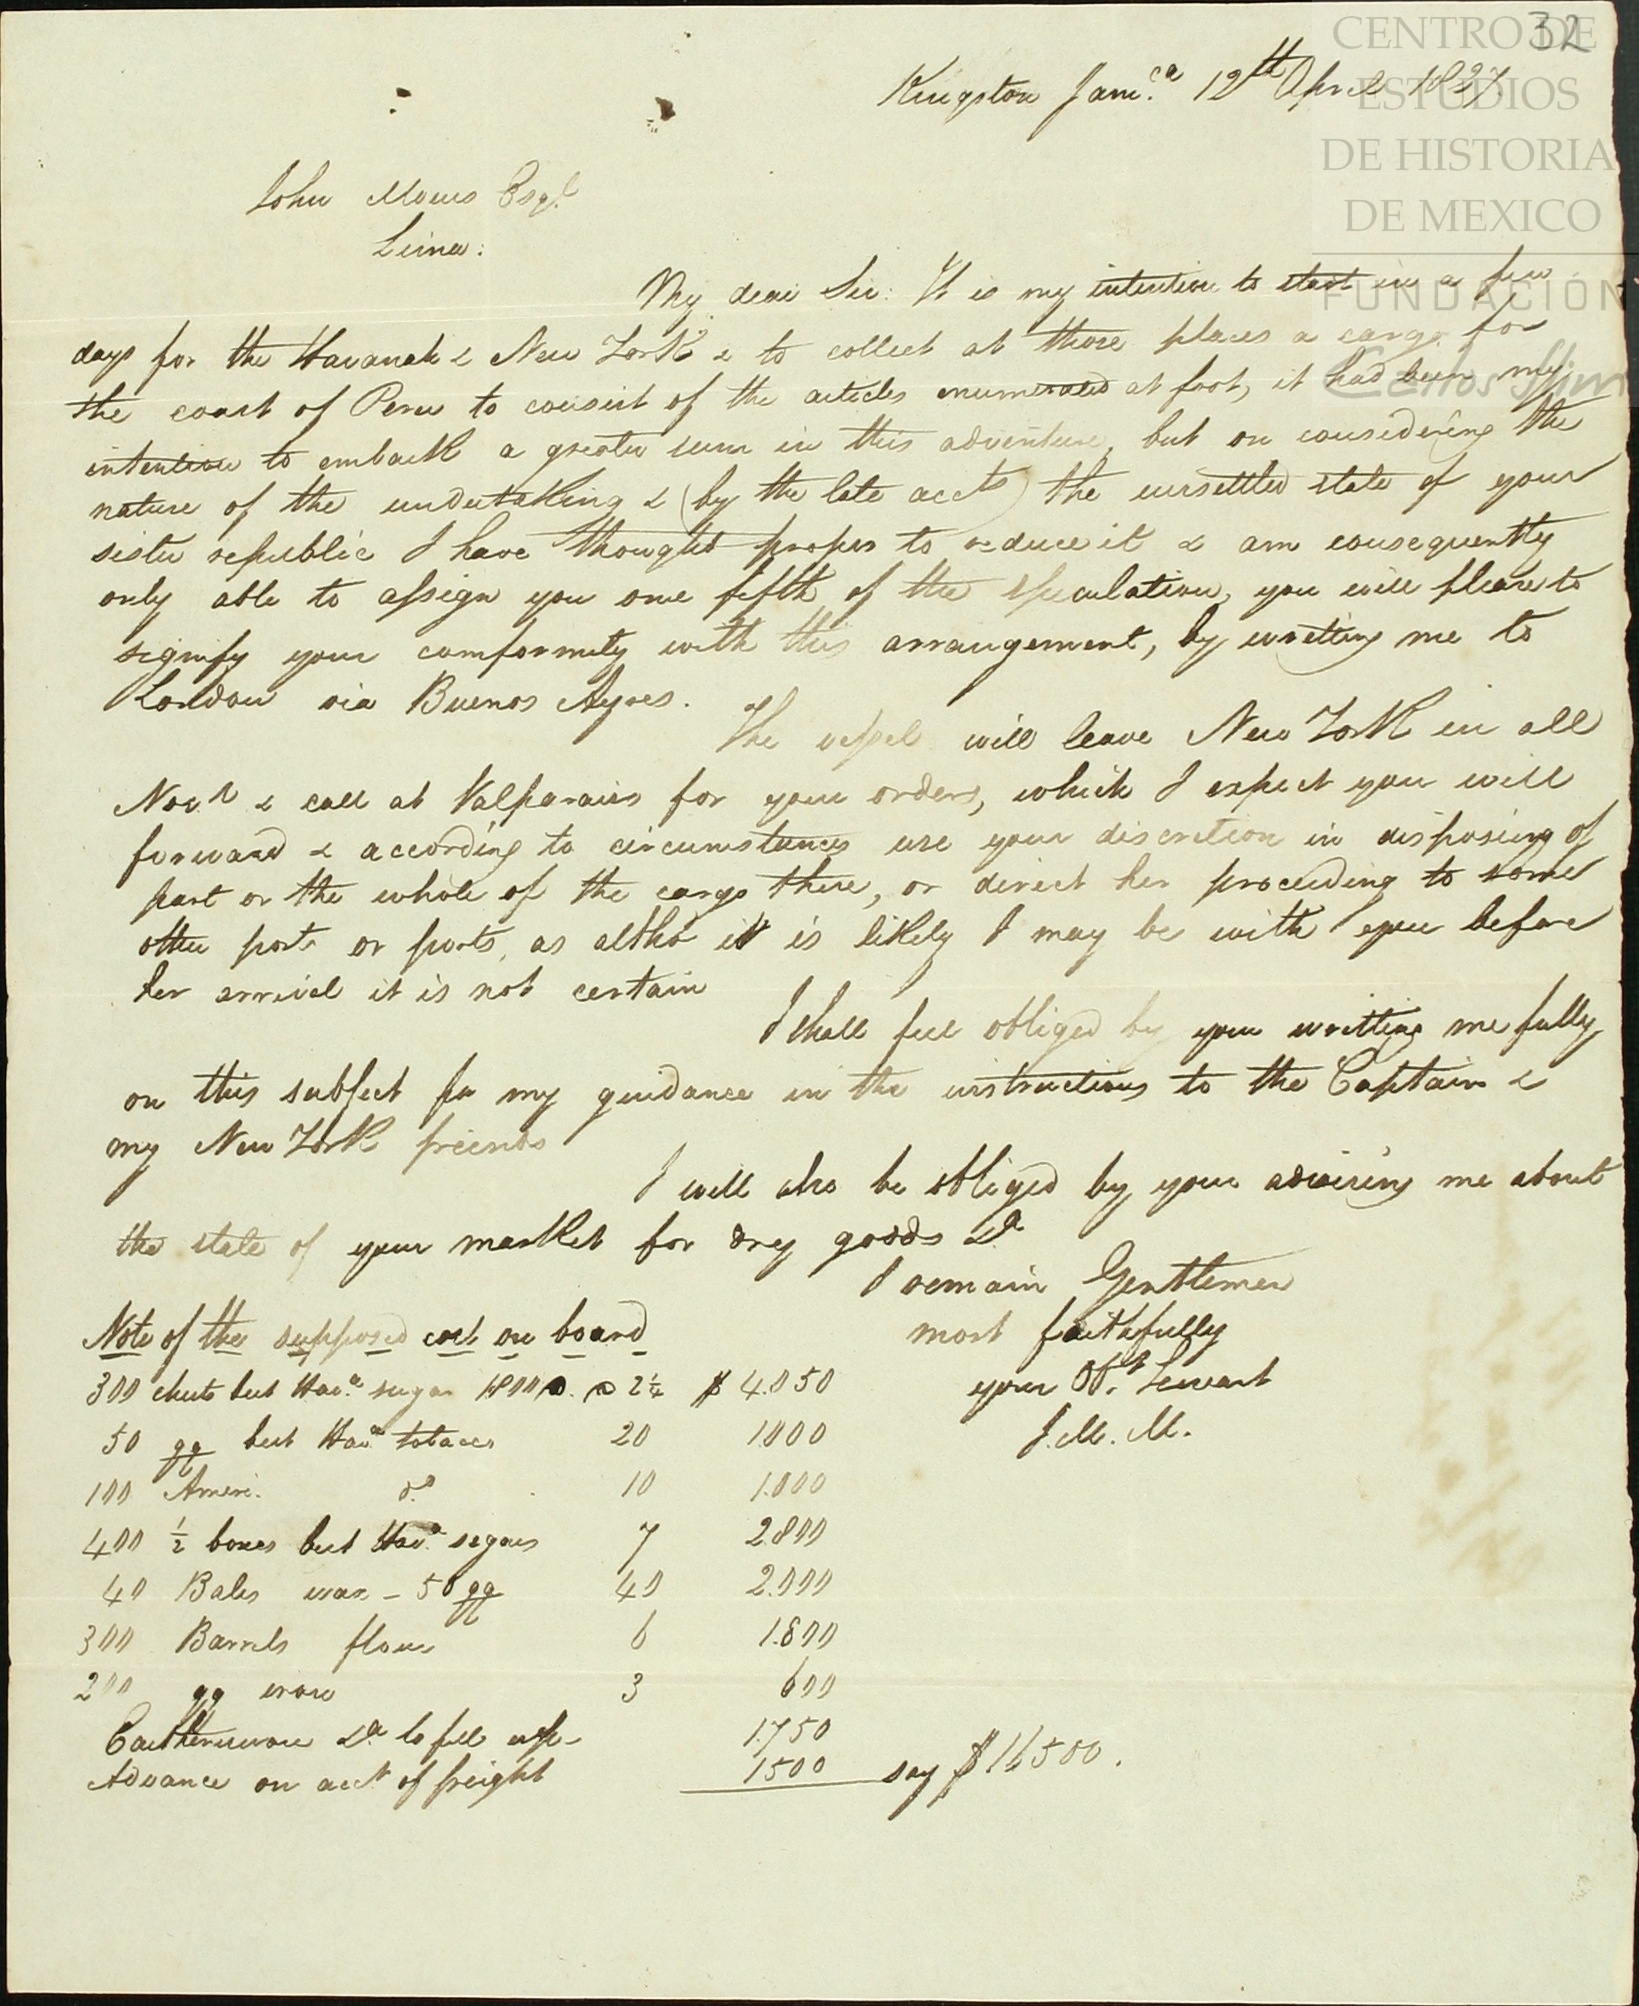 32
CENTRO DE
ESTUDIOS
DE HISTORIA
DE MEXICO
FUNDACIÓN
Carlos Slim
Kingston Jam.ca 12th April 1827.
John Moens Esqr.
Lima:
My dear Sir: It is my intention to start in a few
days for the Havanah & New York & to collect at those places a cargo for
the coast of Peru to consist of the articles enumerated at foot, it had been my
intention to embark a greater sum in this adventure, but on considering the
nature of the undertaking & (by the late accts) the unsettled state of your
sister republic I have thought proper to reduce it & am consequently
only able to assign you one fifth of the speculation, you will please to
signify your comformity with this arrangement, by writting me to
London via Buenos Ayres.
The vessel will leave New York in all
Novr & call at Valparaiso for your orders, which I expect you will
forward & according to circumstances use your discretion in disposing of
part or the whole of the cargo there, or direct her proceeding to some
other port or ports, as altho' it is likely I may be with you before
her arrival it is not certain
I shall feel obliged by your writting me fully
on this subject for my guidance in the instructions to the Captain &
my New York friends
I will also be obliged by your advising me about
the state of your market for dry goods &a
I remain Gentlemen
most faithfully
your Obt. Servant
J. M. M.
Note of the supposed cost on board
300 chests best Hava. sugar 1800 @ 2¼ $ 4.050
50 qq best Hava. tobacco 20 1000
100 Ameri. do. 10 1.000
400 ½ boxes best Hava. segars 7 2.800
40 Bales wax - 50 qq 40 2.000
300 Barrels flour 6 1.800
200 qq iron 3 600
Earthenware &a to fill up - 1.750
Advance on acct of freight 1500 say $ 16500.